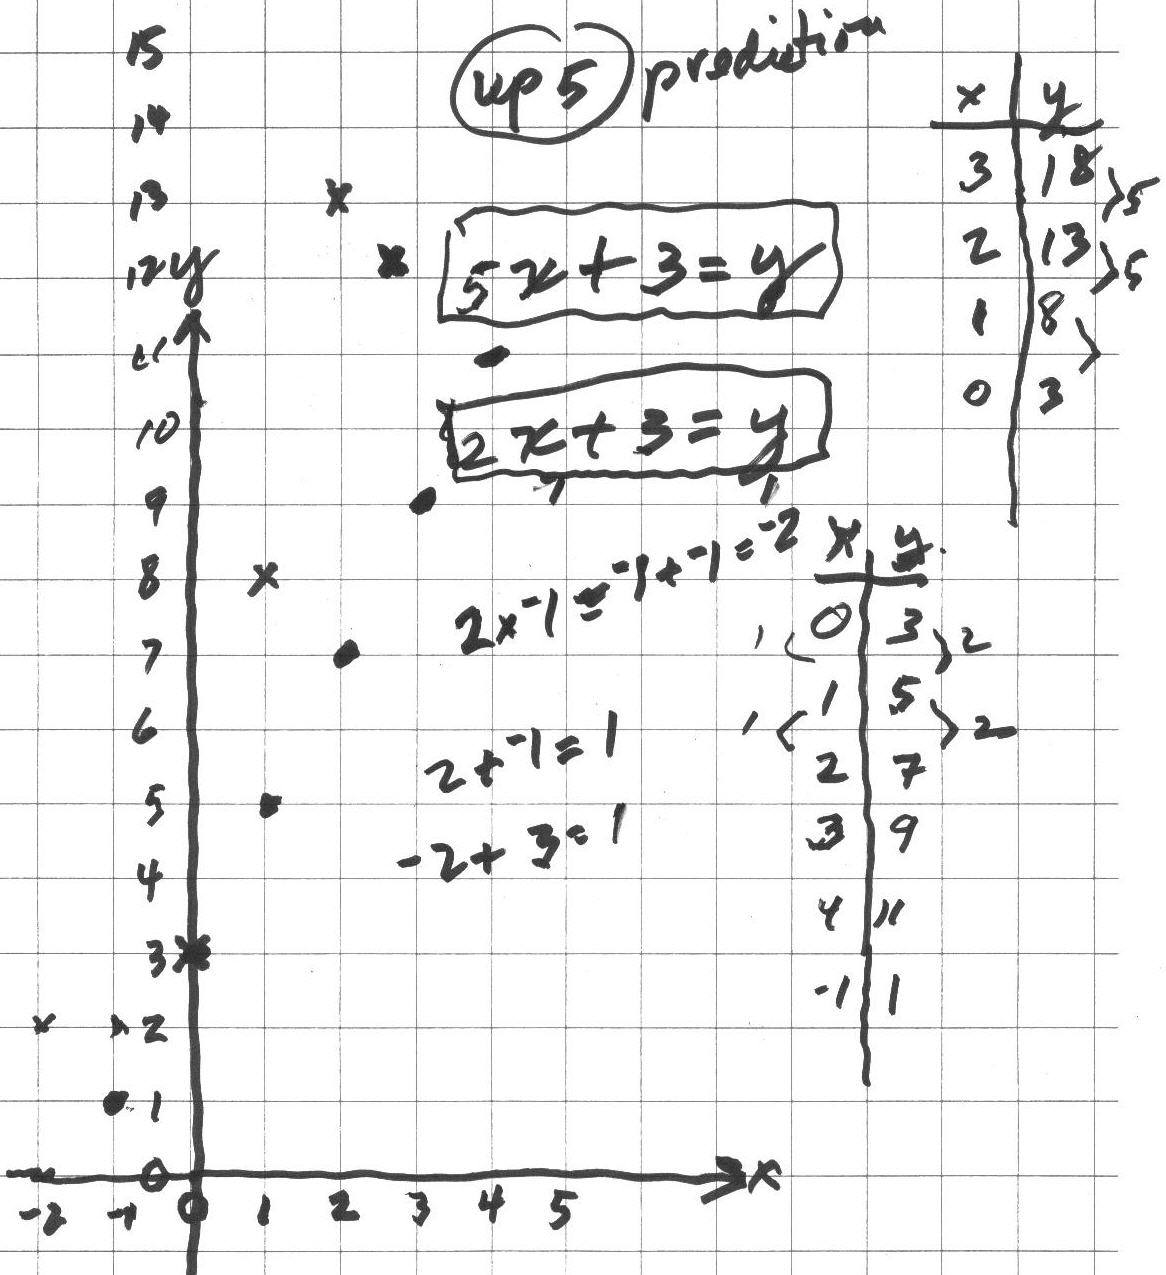 up 5 prediction
5x + 3 = y
2x + 3 = y
2 x -1 = -1 + -1 = -2
2 + -1 = 1
-2 + 3 = 1
x y
3 18
5
2 13
5
1 8
0 3
x y
0 3
1 2
1 5
1 2
2 7
3 9
4 11
-1 1
15
14
13
12 y
11
10
9
8
7
6
5
4
3
2
1
0 x
-2 -1 0 1 2 3 4 5